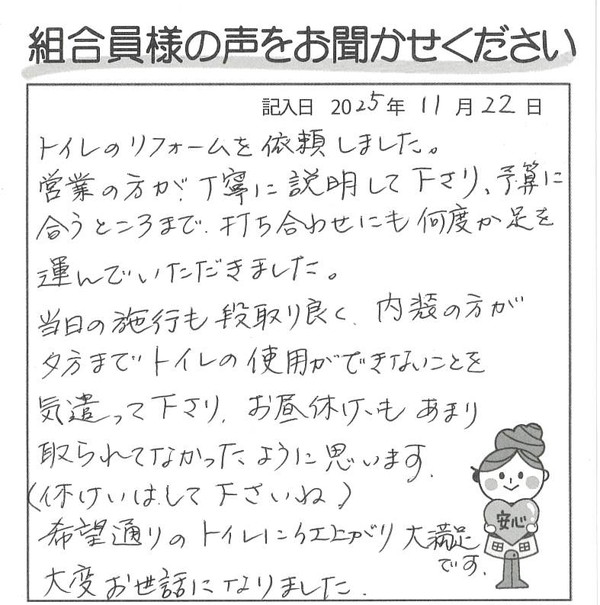 組合員様の声をお聞かせください
記入日 2025年 11月 22日
トイレのリフォームを依頼しました。
営業の方が、丁寧に説明して下さり、予算に
合うところまで、打ち合わせにも何度か足を
運んでいただきました。
当日の施行も段取り良く、内装の方が
夕方までトイレの使用ができないことを
気遣って下さり、お昼休けいもあまり
取られてなかったように思います。
(休けいはして下さいね)
希望通りのトイレに仕上がり大満足
です。
大変お世話になりました.
安心